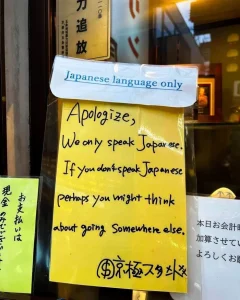 力追放
Japanese language only
Apologize,
We only speak Japanese.
If you don't speak Japanese
perhaps you might think
about going somewhere else.
京極スタンド
お支払いは
現金のみ
本日お会計
加算させてい
よろしくお願